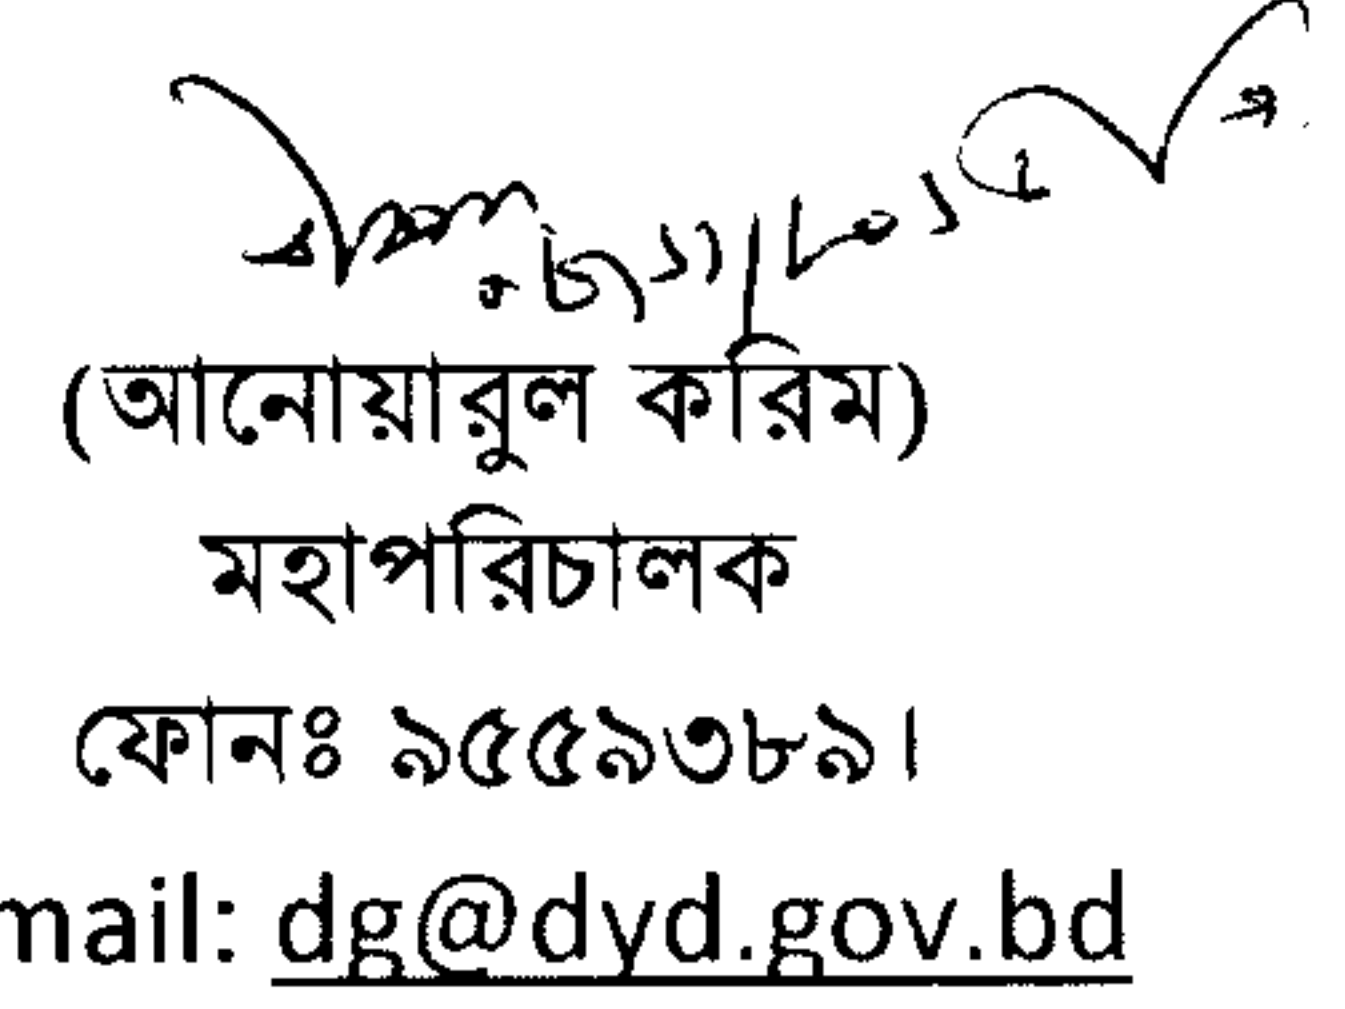 (আনোয়ারুল করিম)
মহাপরিচালক
ফোনঃ ৯৫৫৯৩৮৯।
mail: dg@dyd.gov.bd